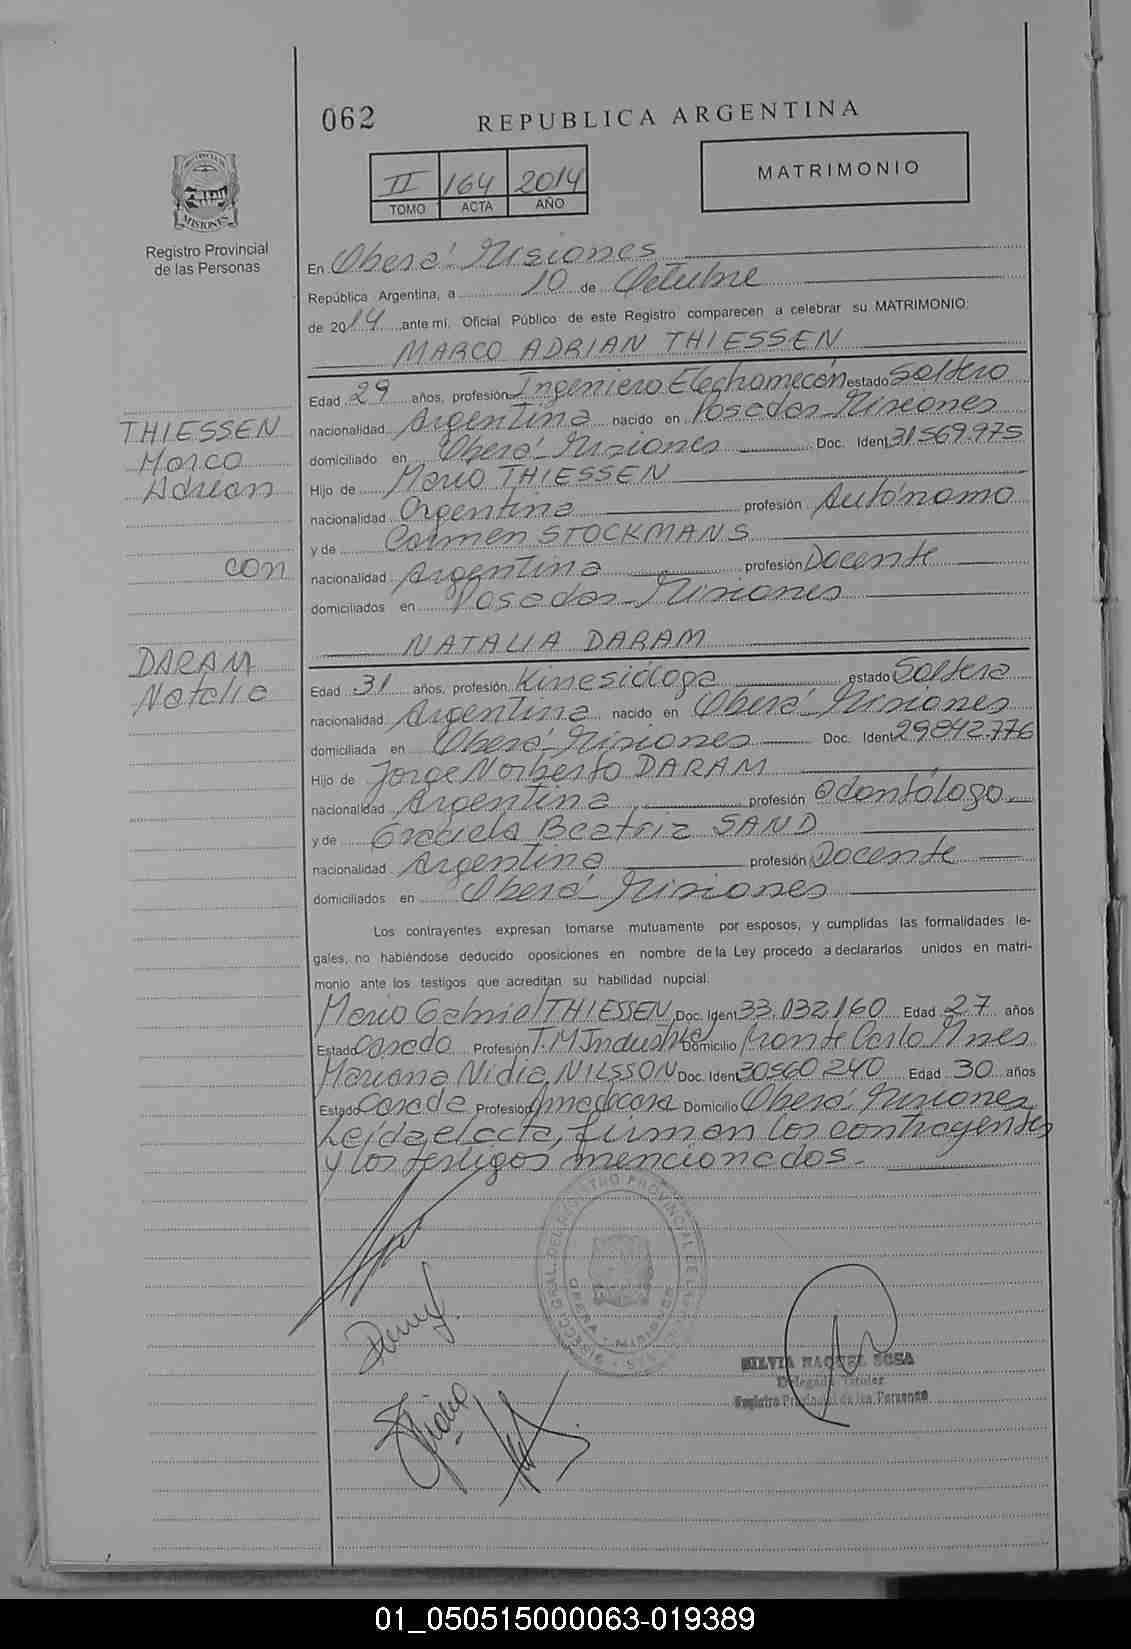 062 REPUBLICA ARGENTINA
PROVINCIA DE
MISIONES
II 164 2014
TOMO ACTA AÑO
MATRIMONIO
Registro Provincial
de las Personas
En Oberá Misiones
República Argentina, a 10 de Octubre
de 2014 ante mí, Oficial Público de este Registro comparecen a celebrar su MATRIMONIO
MARCO ADRIAN THIESSEN
Edad 29 años, profesión Ingeniero Electromecán estado Soltero
nacionalidad Argentina nacido en Posadas Misiones
domiciliado en Oberá Misiones Doc. Ident 31.569.975
Hijo de Mario THIESSEN
nacionalidad Argentina profesión Autónomo
y de Carmen STOCKMANS
nacionalidad Argentina profesión Docente
domiciliados en Posadas Misiones
THIESSEN
Marco
Adrian
con
DARAM
Natalia
NATALIA DARAM
Edad 31 años, profesión Kinesióloga estado Soltera
nacionalidad Argentina nacido en Oberá Misiones
domiciliada en Oberá Misiones Doc. Ident 29.842.776
Hijo de Jorge Norberto DARAM
nacionalidad Argentina profesión Odontólogo
y de Graciela Beatriz SAND
nacionalidad Argentina profesión Docente
domiciliados en Oberá Misiones
Los contrayentes expresan tomarse mutuamente por esposos, y cumplidas las formalidades le-
gales, no habiéndose deducido oposiciones en nombre de la Ley procedo a declararlos unidos en matri-
monio ante los testigos que acreditan su habilidad nupcial.
Mario Gabriel THIESSEN Doc. Ident 33.032.160 Edad 27 años
Estado Casado Profesión T.M Industrial Domicilio Monte Carlo Mnes
Mariana Nidia NILSSON Doc. Ident 30560240 Edad 30 años
Estado Casada Profesión Ama de casa Domicilio Oberá Misiones
Leída el acta, firman los contrayentes
y los testigos mencionados.
SILVIA RAQUEL SOSA
Delegada Titular
Registro Provincial de las Personas
01_050515000063-019389